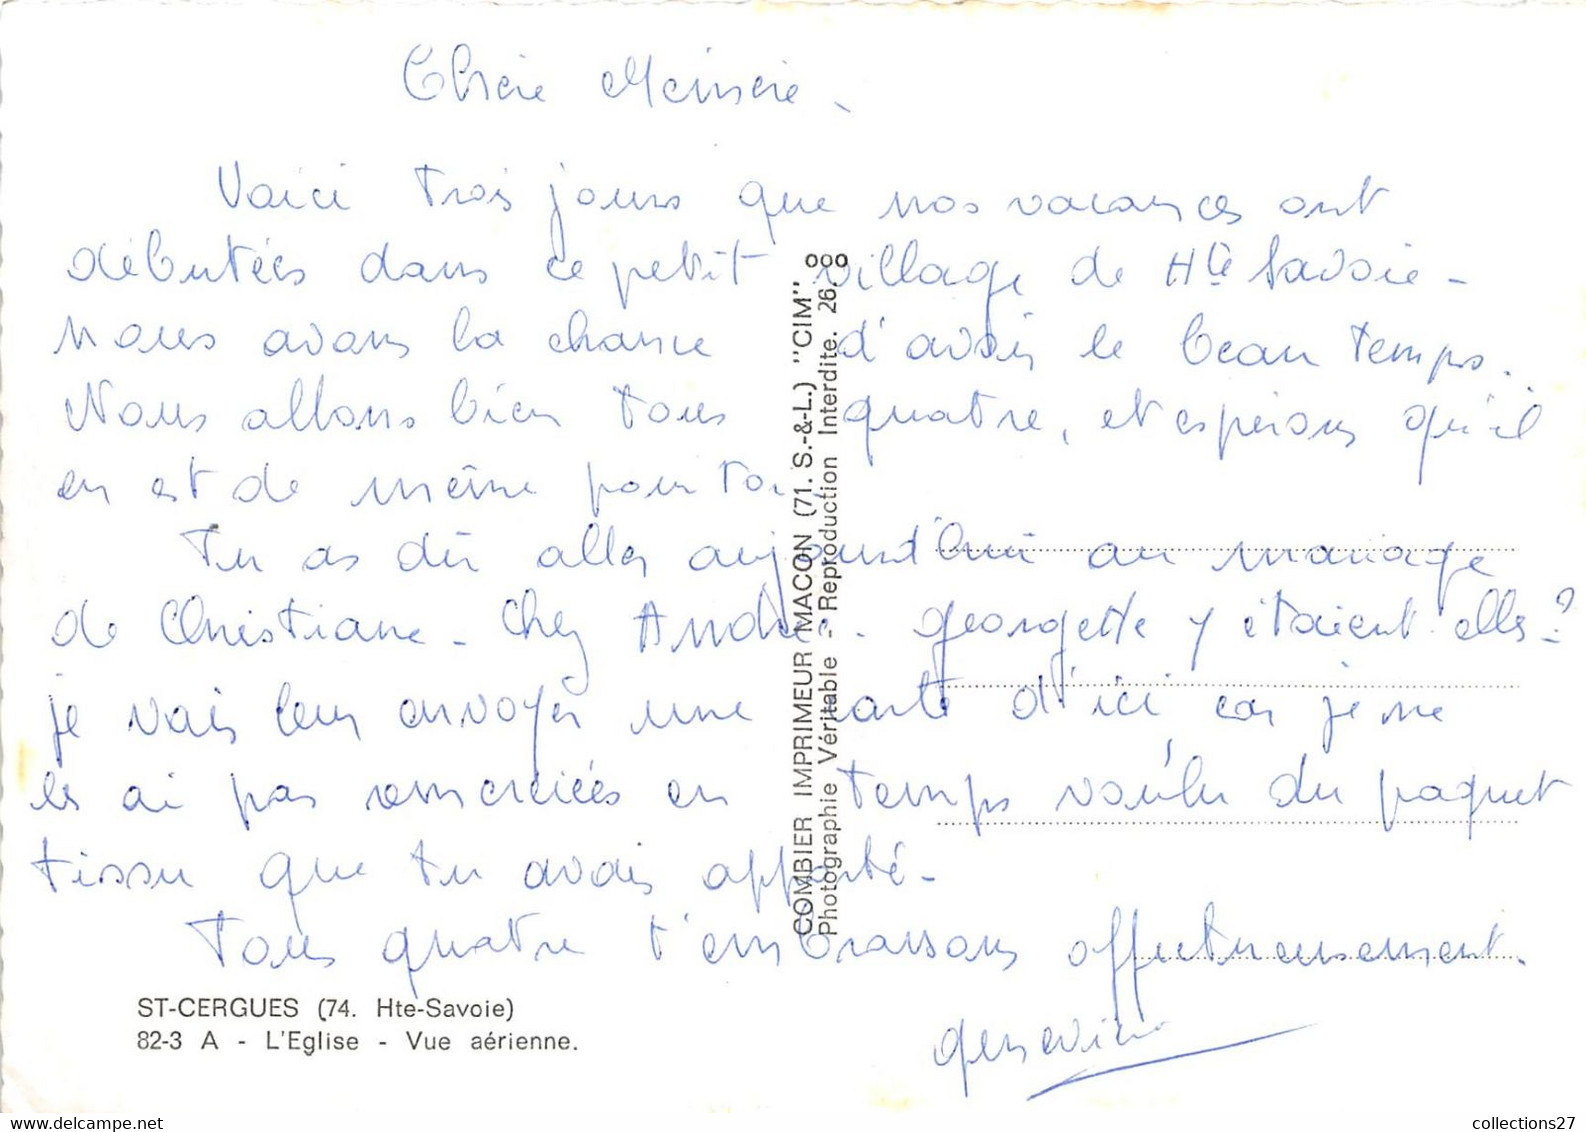 Chère Mémère.
Voici trois jours que nos vacances ont
débutées dans ce petit village de Hte Savoie -
nous avons la chance d'avoir le beau temps.
Nous allons bien tous quatre, et espérons qu'il
en est de même pour toi.
Tu as dû aller aujourd'hui au mariage
de Christiane - Chez André. georgette y étaient elles ?
je vais leur envoyer une carte d'ici car je ne
les ai pas remerciées en temps voulu du paquet
tissu que tu avais apporté -
Tous quatre t'embrassons affectueusement.
geneviève
ST-CERGUES (74. Hte-Savoie)
82-3 A - L'Eglise - Vue aérienne.
COMBIER IMPRIMEUR MACON (71. S.-&-L.) "CIM"
Photographie Véritable - Reproduction Interdite. 26.
collections27